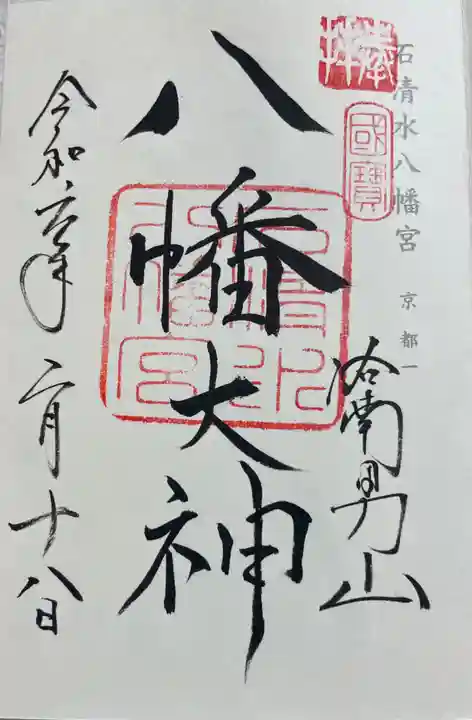 石清水八幡宮 京都一
奉拝
國寶
洛南男山
八幡大神
石清水八幡宮
令和六年二月十八日